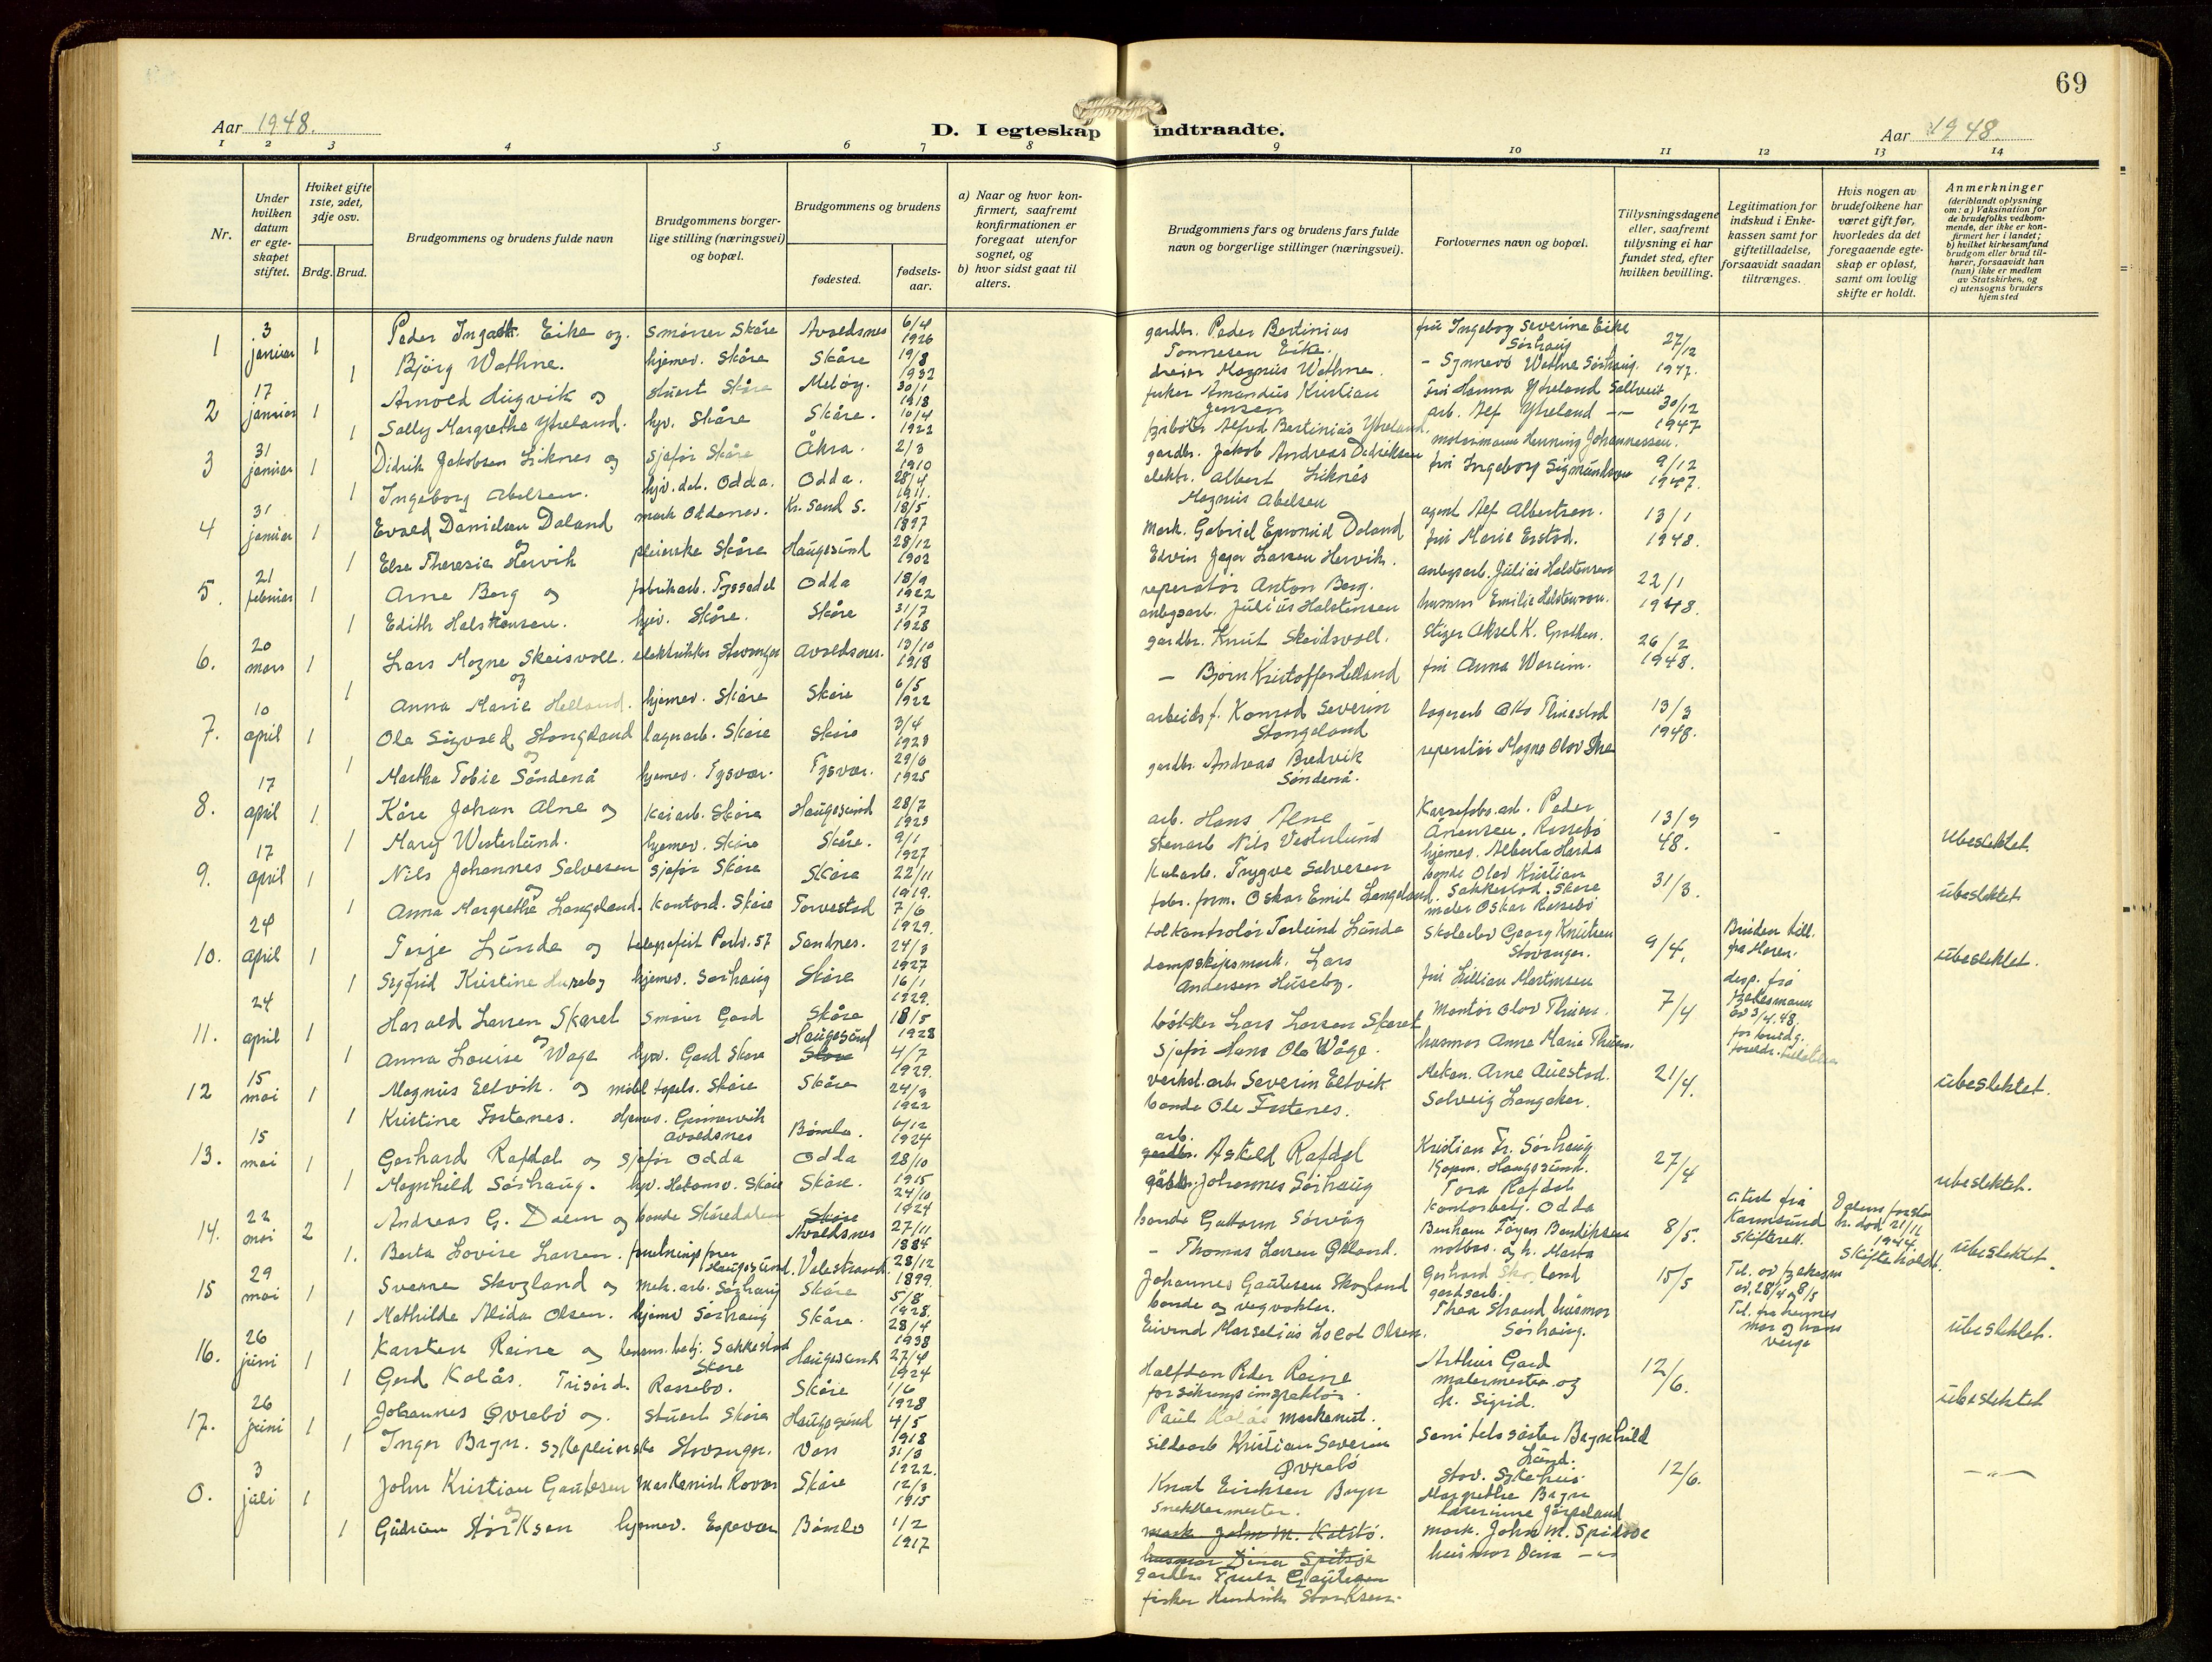 69
Aar 1948.
D. I egteskap indtraadte.
Aar 1948
1 2 3 4 5 6 7 8 9 10 11 12 13 14
Nr.
Under hvilken datum er egteskapet stiftet.
Hviket gifte 1ste, 2det, 3dje osv.
Brdg. Brud.
Brudgommens og brudens fulde navn
Brudgommens borgerlige stilling (næringsvei) og bopæl.
Brudgommens og brudens
fødested.
fødselsaar.
a) Naar og hvor konfirmert, saafremt konfirmationen er foregaat utenfor sognet, og
b) hvor sidst gaat til alters.
Brudgommens fars og brudens fars fulde navn og borgerlige stillinger (næringsvei).
Forlovernes navn og bopæl.
Tillysningsdagene eller, saafremt tillysning ei har fundet sted, efter hvilken bevilling.
Legitimation for indskud i Enkekassen samt for giftetilladelse, forsaavidt saadan tiltrænges.
Hvis nogen av brudefolkene har været gift før, hvorledes da det foregaaende egteskap er opløst, samt om lovlig skifte er holdt.
Anmerkninger
(deriblandt oplysning om: a) Vaksination for de brudefolks vedkommende, der ikke er konfirmert her i landet; b) hvilket kirkesamfund brudgom eller brud tilhører, forsaavidt han (hun) ikke er medlem av Statskirken, og c) utensogns bruders hjemsted
1 3 januar 1 Peder Eike og smører Skåre Avaldsnes 6/4 1926 gardbr. Peder Bertinius Tonnesen Eike. frú Ingeborg Severine Eike Sørhaug 27/12 1947.
1 Bjørg Wathne. hjemev. Skåre Skåre 19/8 1932 Magnus Wathne. - Synnøve Wathne Sørhaug.
2 17 januar 1 Arnold Hugvik og stuert Skåre Meløy. 30/1 1918 fisker Amandus Kristian Jensen Frú Hanna Ytreland Saltveit 30/12 1947
1 Solly Margrethe Ytreland. hjv. Skåre Skåre. 10/4 1922 Alfred Bertinius Ytreland. arb. Alf Ytreland -"-
3 31 januar 1 Didrik Jakobsen Liknes og sjafør Skåre Åkra. 2/3 1910 gardbr. Jakob Andreas Didriksen Liknes motormann Henning Johannessen. 9/12 1947.
1 Ingeborg Abelsen. hjv. dat. Odda. Odda. 28/4 1911. elektr. Albert Magnus Abelsen frú Ingeborg Sigmundsen
4 31 januar 1 Evald Danielsen Doland og mask Oddernes. Kr. Sand S. 18/5 1897 Mask. Gabriel Doland agent Alf Albertsen. 13/1 1948.
1 Else Theresie Hervik pleierske Skåre Haugesund 28/12 1902 Elvin Larsen Hervik. frú Marie Erstad.
5. 21 februar 1 Arne Berg og fabrikarb. Tyssedal Odda 18/9 1922 reperatør Anton Berg. anlegsarb. Julius Halstensen 22/1 1948.
1 Edith Halstensen. hjev. Skåre. Skåre 31/7 1928 anlegsarb. Julius Halstensen husmor Emilie Halstensen.
6. 20 mars 1 Lars Mogne Skeisvoll. og elektriker Stavanger Avaldsnes. 13/10 1918 gardbr. Knut Skeidsvoll. Stiger Aksel K. Grothen. 26/2 1948.
1 Anna Marie Helland. hjemev. Skåre Skåre 6/5 1922 - Bjørn Kristoffer Helland frú Anna Wareim.
7. 10 april 1 Ole Sigvald Stangeland og lagerarb. Skåre Skåre 3/4 1923 arbeidsf. Konrad Severin Stangeland lagerarb Otto Thuestad 13/3 1948.
1 Martha Tobie Søndenå hjemev. Tysvær. Tysvær. 29/6 1925 gardbr. Andreas Bredvik Søndenå. reperatør Magne Olav Thue
8. 17 april 1 Kåre Johan Alne og kaiarb. Skåre Haugesund 28/7 1923 arb. Hans Alne Kassefabr. arb. Peder Ånensen, Rossebø 13/3 48. ubeslektet.
1 Mary Westerlund. hjemev. Skåre Skåre. 9/1 1927 Stenarb Nils Vesterlund hjemev. Alberta
9. 17 april 1 Nils Johannes Salvesen og sjafør Skåre Skåre 22/11 1919. Kularb. Trygve Salvesen bonde Olav Kristian Sakkestad. Skåre 31/3. ubeslektet
1 Anna Margrethe Langeland. kontord. Skåre Torvestad 7/6 1929. fabr. form. Oskar Emil Langeland. maler Oskar Rossebø
10. 24 april 1 Terje Lunde og telegrafist Sandnes. 24/3 1927 tolkontrolør Torlund Lunde Skoleelev Georg Knutsen Stavanger. 9/4. Bruden till. fra Moren. ubeslektet.
1 Sigfrid Kristine Huseby hjemev. Sørhaug Skåre 16/1 1929. dampskipsmask. Lars Andersen Huseby. frú Lillian Martinsen
11. 24 april 1 Harald Larsen Skaret og smører Gard Skåre 18/5 1928 bøkker Lars Larsen Skaret Montør Olav 7/4 desp. fra fylkesmann av 3/4.48.
1 Anna Louise Wage hjv. Gard Skåre Haugesund 4/7 1929. sjafør Hans Ole Våge. husmor Anna Marie
12 15 mai 1 Magnus Eltvik. og Skåre Skåre 24/3 1922 verksd. arb Severin Eltvik Mekan. Arne Auestad. 21/4. ubeslektet.
1 Kristine Fostenes. Hjemev. Gunnarvik Avaldsnes Bømlo. 6/12 1924 bonde Ole Fostenes. Solveig Langåker.
13. 15 mai 1 Gerhard Rafdal og sjafør Odda Odda 28/10 1915 arb. Askild Rafdal Kristian Fr. Sørhaug Kopm. Haugesund. 27/4 ubeslektet.
1 Magnhild Sørhaug. hjv. Hakonsv. Skåre Skåre. 24/10 1924 Johannes Sørhaug Tora Rafdal Kontorbetj. Odda
14. 22 mai 2 Andreas G. Dalem og bonde Skåredalen Avaldsnes 27/11 1884 bonde Guttorm Sørvåg Bendiksen 8/5. Attest fra Karmsund Skifterett. død 21/11 1944 Skifte holdt. ubeslektet.
1. Berta Lovise Larsen. Haugesund. Valestrand. 28/12 1899. - Thomas Larsen notbas. og h. Marta
15 29 mai 1 Sverre Skogland og Mek. arb. Sørhaug Skåre 5/8 1928. Johannes Gautesen Skogland bonde og vegvokter. Gerhard gardsarb. 15/5 Til. av fylkesm av 28/4 og 8/5 ubeslektet.
1 Mathilde Alida Olsen. hjemev Sørhaug Skåre. 28/4 1938 Eivind Marselius Olsen. Thea Strand husmor Sørhaug. mor og verge
16. 26 juni 1 Karsten Reine og lensm. betj. Sakkestad Skåre Haugesund 27/4 1924 Halfdan Peder Reine forsikringsinspektør. Arthur Gard malermester og h. Sigrid. 12/6. ubeslektet
1 Gerd Kolås. Frisørd. Rossebø. Skåre 1/6 1928 Paul Kolås maskenist.
17. 26 juni 1 Johannes Øvrebø og. stuert Skåre Haugesund 4/5 1918 Sildearb Kristian Severin Øvrebø Sanitetssøster Bagnhild Lund. Stav. Sykehus. 12/6. -"-
1 Inger Bryn. sykepleierske Stavanger. Voss 31/3 1922. Knut Eirikson Bryn Snekkermester. Margrethe Bryn lærerinne Jørpeland
0. 3 juli 1 John Kristian Gautesen og Maskenist Røvær Skåre 12/3 1915 mask John M. mask. John M. Spidsøe
1 Gudrun Størksen hjemev. Espevær Bømlo 1/2 1917 husmor Dina Spitsøe husmor Dina -"-
gardbr. Truls Gautesen
fisker Hendrik Størksen.